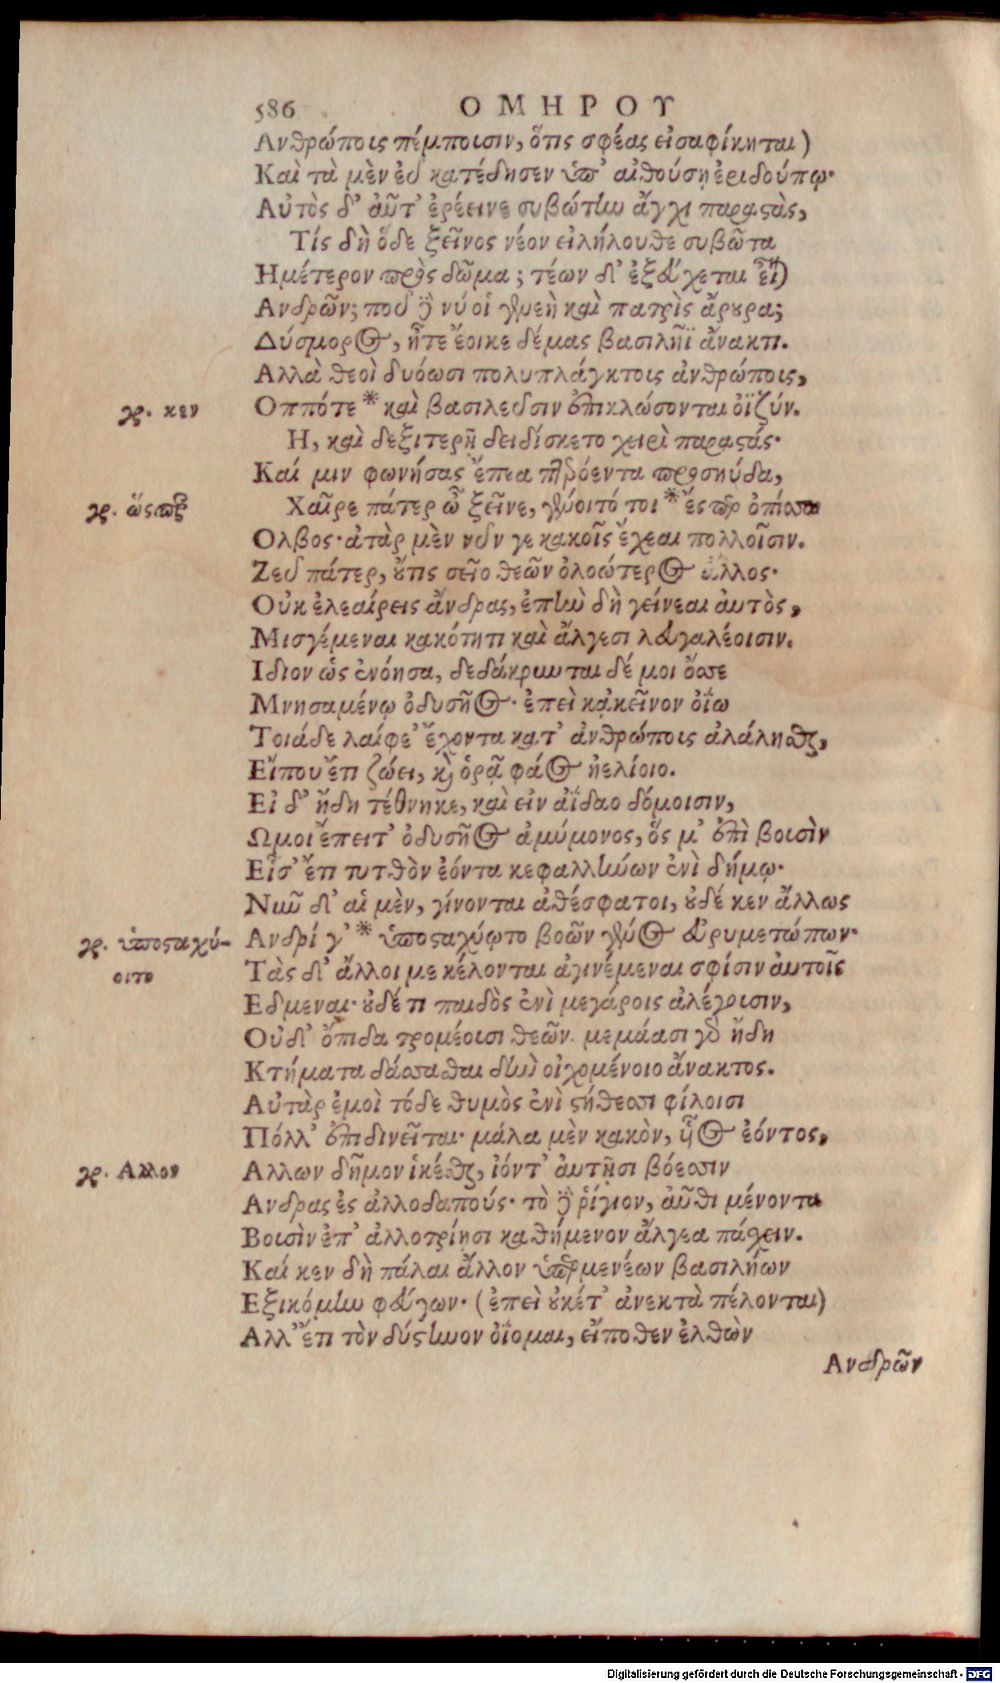 586 ΟΜΗΡΟΥ
Ανθρώποις πέμπουσιν, ὅτις σφέας εἰσαφίκηται)
Καὶ τὰ μὲν εὖ κατέδησεν ὑπ' αἰθούσῃ ἐριδούπῳ·
Αὐτὸς δ' αὖτ' ἐρέεινε συβώτην ἄγχι παραστὰς,
Τίς δὴ ὅδε ξεῖνος νέον εἰλήλουθε συβῶτα
Ημέτερον πρὸς δῶμα; τέων δ' ἐξεύχεται εἶναι
Ανδρῶν; ποῦ δὲ νύ οἱ γενεὴ καὶ πατρὶς ἄρουρα;
Δύσμορος, ἦτε ἔοικε δέμας βασιλῆϊ ἄνακτι.
Αλλὰ θεοὶ δυόωσι πολυπλάγκτοις ἀνθρώποις,
γρ. κεν Οππότε * καὶ βασιλεῦσιν ἐπικλώσονται ὀϊζύν.
Η, καὶ δεξιτερῇ δειδίσκετο χειρὶ παραστάς·
Καί μιν φωνήσας ἔπεα πτερόεντα προσηύδα,
γρ. ὥσπερ Χαῖρε πάτερ ὦ ξεῖνε, γένοιτό τοι * ἔς περ ὀπίσσω
Ολβος· ἀτὰρ μὲν νῦν γε κακοῖς ἔχεαι πολλοῖσιν.
Ζεῦ πάτερ, οὔτις σεῖο θεῶν ὀλοώτερος ἄλλος·
Οὐκ ἐλεαίρεις ἄνδρας, ἐπὴν δὴ γείνεαι αὐτὸς,
Μισγέμεναι κακότητι καὶ ἄλγεσι λευγαλέοισιν.
Ιδιον ὡς ἐνόησα, δεδάκρυνται δέ μοι ὄσσε
Μνησαμένῳ ὀδυσῆος· ἐπεὶ κᾀκεῖνον ὀΐω
Τοιάδε λαίφε' ἔχοντα κατ' ἀνθρώποις ἀλάλησθαι,
Εἴπου ἔτι ζώει, καὶ ὁρᾷ φάος ἠελίοιο.
Εἰ δ' ἤδη τέθνηκε, καὶ εἰν ἀΐδαο δόμοισιν,
Ωμοι ἔπειτ' ὀδυσῆος ἀμύμονος, ὅς μ' ἐπὶ βουσὶν
Εἷσ' ἔτι τυτθὸν ἐόντα κεφαλλήνων ἐνὶ δήμῳ·
Νῦν δ' αἱ μὲν, γίνονται ἀθέσφατοι, οὐδέ κεν ἄλλως
γρ. ὑποσταχύ- Ανδρί γ' * ὑποσταχύῳτο βοῶν γένος εὐρυμετώπων·
οιτο Τὰς δ' ἄλλοι με κέλονται ἀγινέμεναι σφίσιν αὐτοῖς
Εδμεναι· οὐδέ τι παιδὸς ἐνὶ μεγάροις ἀλέγουσιν,
Οὐδ' ὄπιδα τρομέουσι θεῶν· μεμάασι γὰρ ἤδη
Κτήματα δάσσασθαι δὴν οἰχομένοιο ἄνακτος.
Αὐτὰρ ἐμοὶ τόδε θυμὸς ἐνὶ στήθεσσι φίλοισι
Πόλλ' ἐπιδινεῖται· μάλα μὲν κακὸν, υἷος ἐόντος,
γρ. Αλλον Αλλων δῆμον ἱκέσθαι, ἰόντ' αὐτῇσι βόεσσιν
Ανδρας ἐς ἀλλοδαπούς· τὸ δὲ ῥίγιον, αὖθι μένοντα
Βουσὶν ἐπ' ἀλλοτρίῃσι καθήμενον ἄλγεα πάσχειν.
Καί κεν δὴ πάλαι ἄλλον ὑπερμενέων βασιλήων
Εξικόμην φεύγων· (ἐπεὶ οὐκέτ' ἀνεκτὰ πέλονται)
Αλλ' ἔτι τὸν δύστηνον ὀΐομαι, εἴποθεν ἐλθὼν
Ανδρῶν
Digitalisierung gefördert durch die Deutsche Forschungsgemeinschaft - DFG